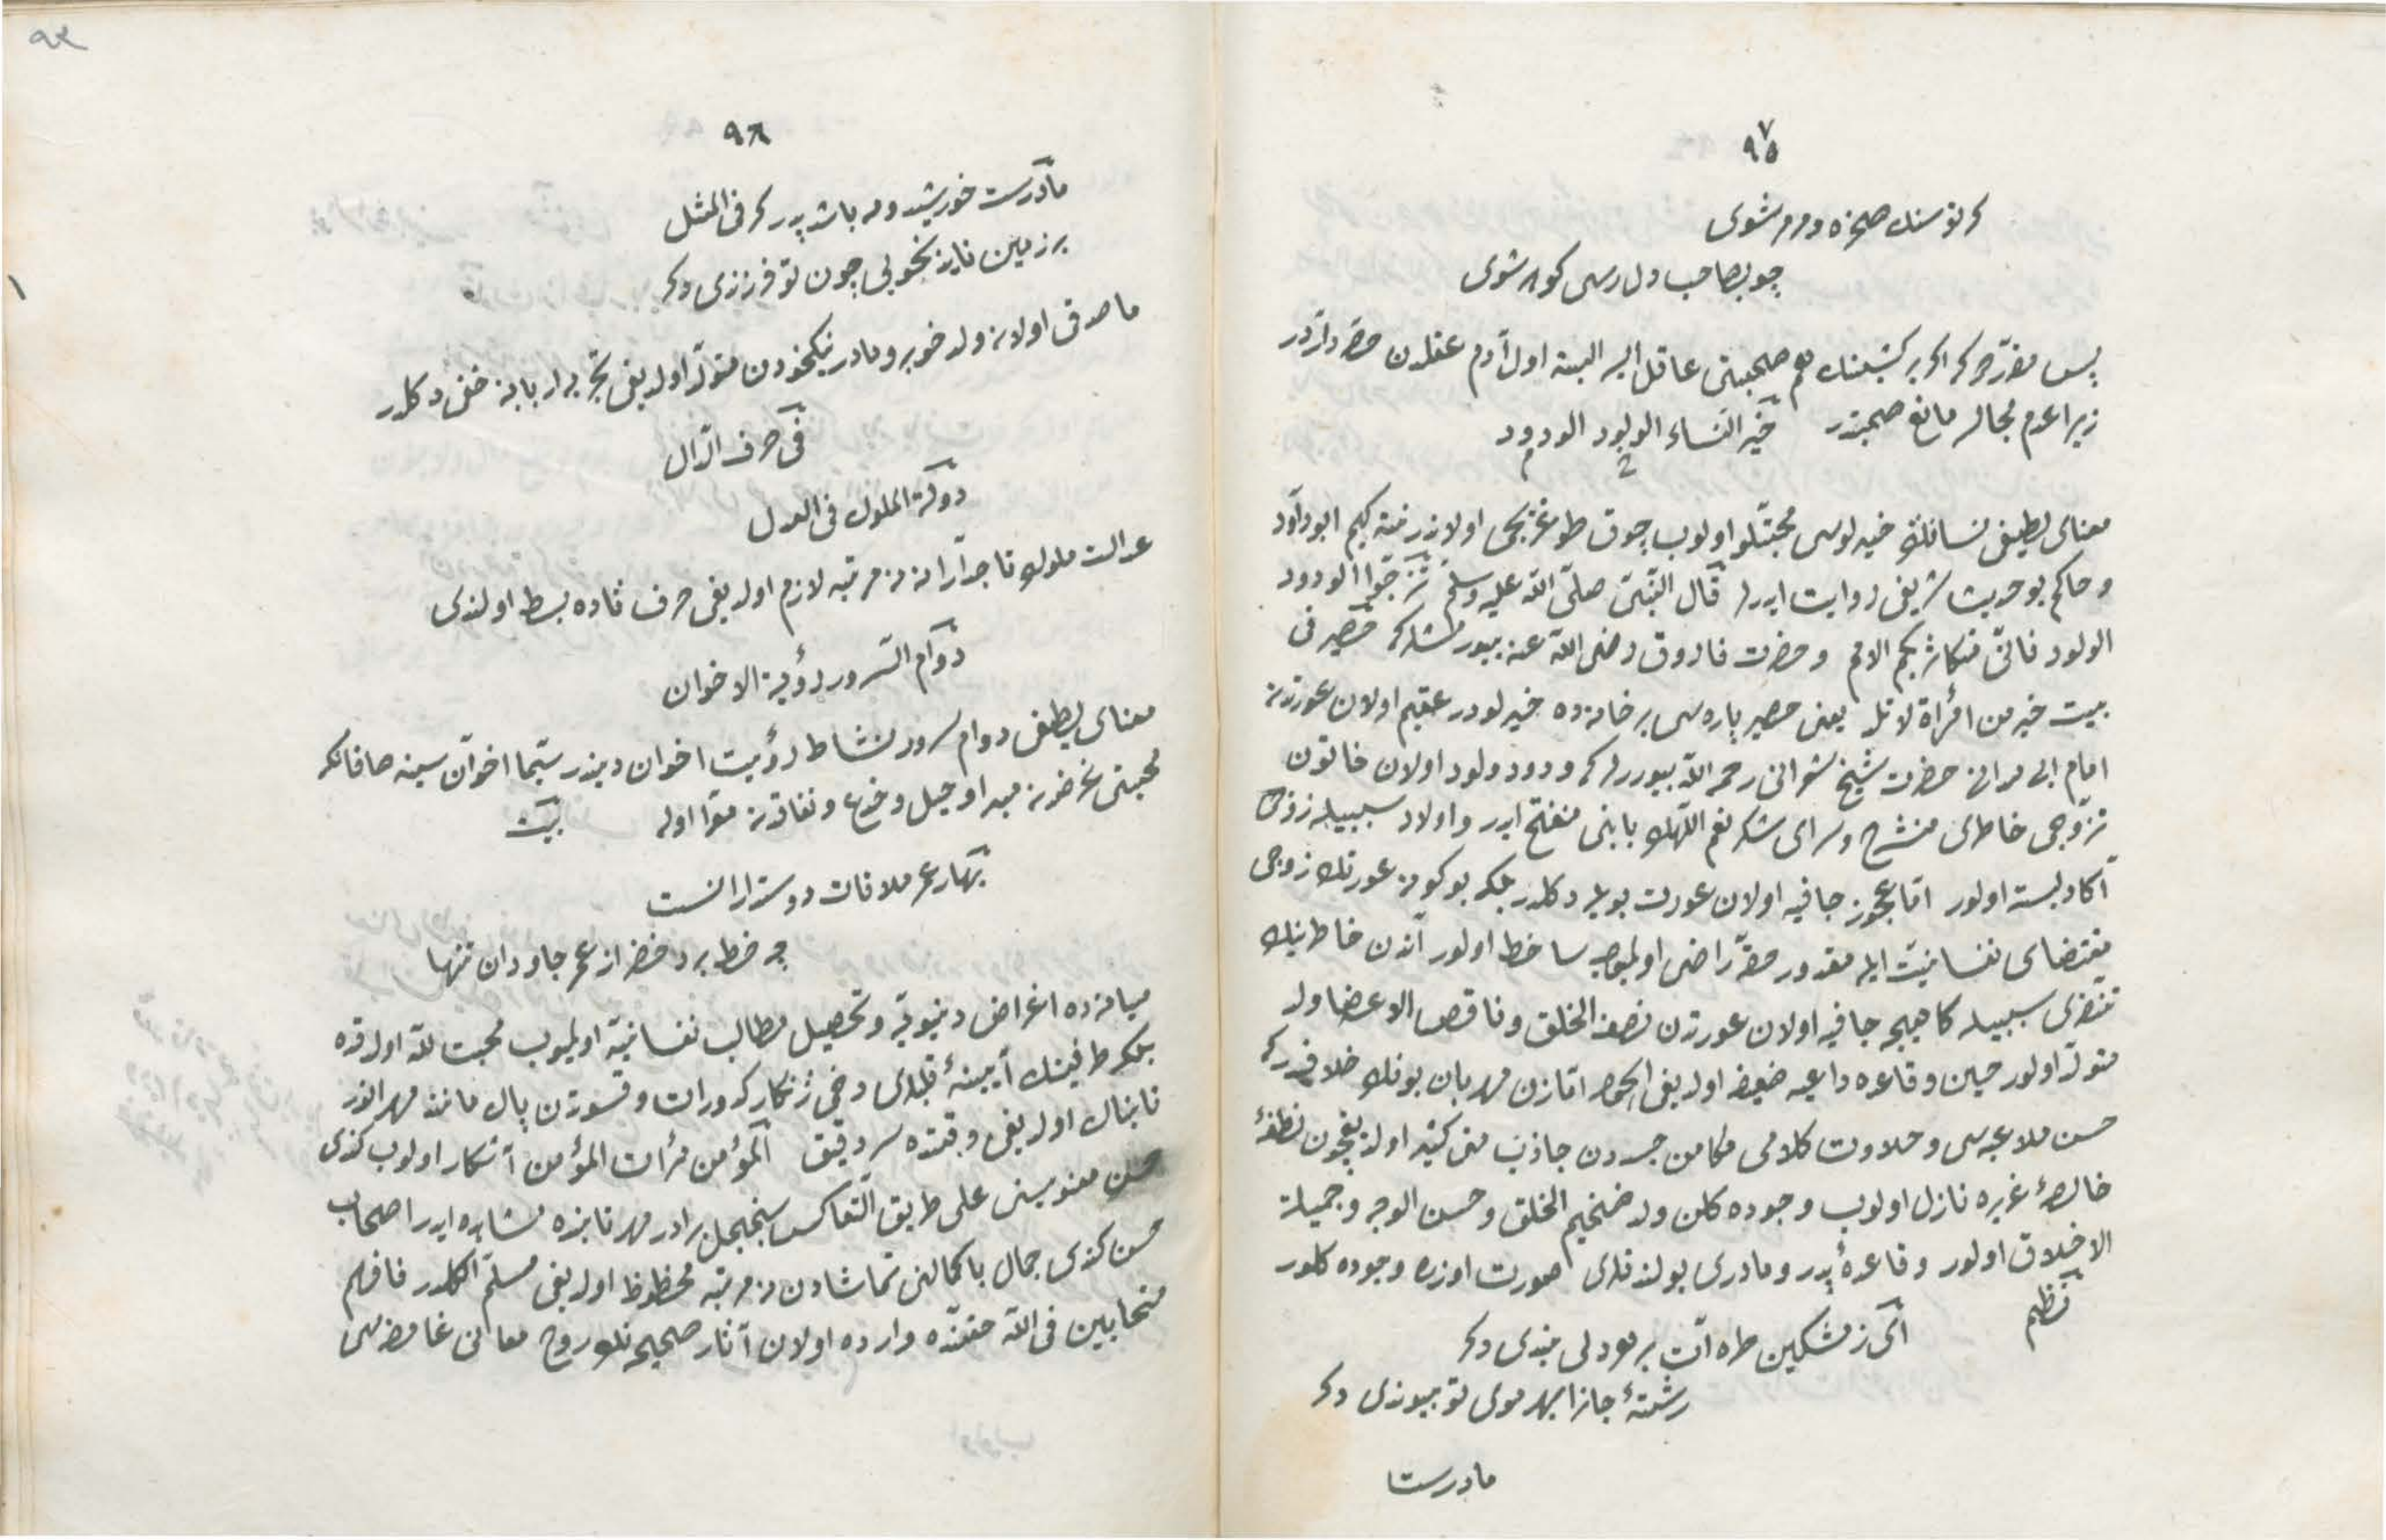 ٩٧
٩٥
كر تو سنك صخره ومرمر شوى
چو بصاحب دل رسى كوهر شوى
پس مقرّردر كه اكر بر كشينك هم صحبتى عاقل ايسه البته اول آدم عقلدن حصّه داردر
زيرا عدم مجالسه مانع صحبتدر خير النساء الولود الودود
معناى لطيفى نسانك خيرلوسى محبتلو اولوب چوق طوغريجى اولانلرينه كيم ابوداود
وحاكم بو حديث شريفى روايت ايدرلر قال النّبى صلّى اللّه عليه وسلّم تزوّجوا الودود
الولود فانّى مكاثر بكم الامم وحضرت فاروق رضى اللّه عنه بيورمشلركه حصير فى
بيت خير من امرأة لا تلد يعنى حصير پاره سى بر خانه ده خيرلودر عقيم اولان عورتدن
امام حضرت شيخ شعرانى رحمه اللّه بيوررلركه ودود ولود اولان خاتون
تزوّجى خاطرى منشرح وسراى شكر نعم الٓهينك بابنى منفتح ايدر واولاد سببيله زوجى
آكا دلبسته اولور امّا عجوز جافيه اولان عورت بويله دكلدر بلكه بو كونه عورتك زوجى
مقتضاى نفسانيت ايله مقدور حقّه راضى اولميوب ساخط اولور آندن خاطرينك
تنفرى سببيله كاهيجه جافيه اولان عورتدن نصف الخلق وناقص الاعضا ولد
متولّد اولور حين وقاعده داعيه ضعيف اولديغى امّا زن مهربان بونك خلافيدركه
حسن ملاعبه سى وحلاوت كلامى مكامن جسددن جاذب منى كثير اولديغيچون نطفۀ
خالصۀ غيره نازل اولوب وجوده كلن ولد ضخيم الخلق وحسن الوجه وجميلة
الاخلاق اولور وقاعدۀ پدر ومادرى بولندقلرى صورت اوزره وجوده كلور
نظم
اى ز مشكين طره ات بر هر دلى بندى دكر
رشتۀ جانرا بهر موى تو پيوندى دكر
مادرست
٩٨
مادرست خورشيد ومه باشد پدر كر فى المثل
بر زمين نايد بخوبى چون تو فرزندى دكر
ماصدقى اولان ولد خوبرو مادر نيكخودن متولّد اولديغى تجربه اربابنه خفى دكلدر
فى حرف الدّال
دولة الملوك فى العدل
عدالت ملوك تاجدارانه نه مرتبه لازم اولديغى حرف ثاده بسط اولندى
دوام السّرور رؤية الاخوان
معناى لطيفى دوام سرور نشاط رؤيت اخوان ديندر سيّما اخوان سينه صافانكه
محبتى غرضدن مبرا وحيل وخدع ونفاقدن معرّا اوله بيت
بهار عمر ملاقات دوستدارانست
چه خط برد خضر از عمر جاودان تنها
ميانه ده اغراض دنيويّه وتحصيل مطالب نفسانيّه اولميوب محبت للّه اولدقده
بلكه طرفينك آيينۀ قلبلرى دخى ژنكار كدورات وقسوتدن پاك مانند مهر انور
تابناك اولديغى وقتده سر دقيق المؤمن مرآت المؤمن آشكار اولوب كندى
حسن معنويسنى على طريق التّعاكس سجنجل برادر مهر تابنده مشاهده ايدر اصحاب
حسن كندى جمال باكمالنى تماشادن نه مرتبه محظوظ اولديغى مسلّم فافهم
متحابين فى اللّه حقنده وارده اولان آثار صحيحه نك روح معانى غامضه سى
اولوب
٩٤
١